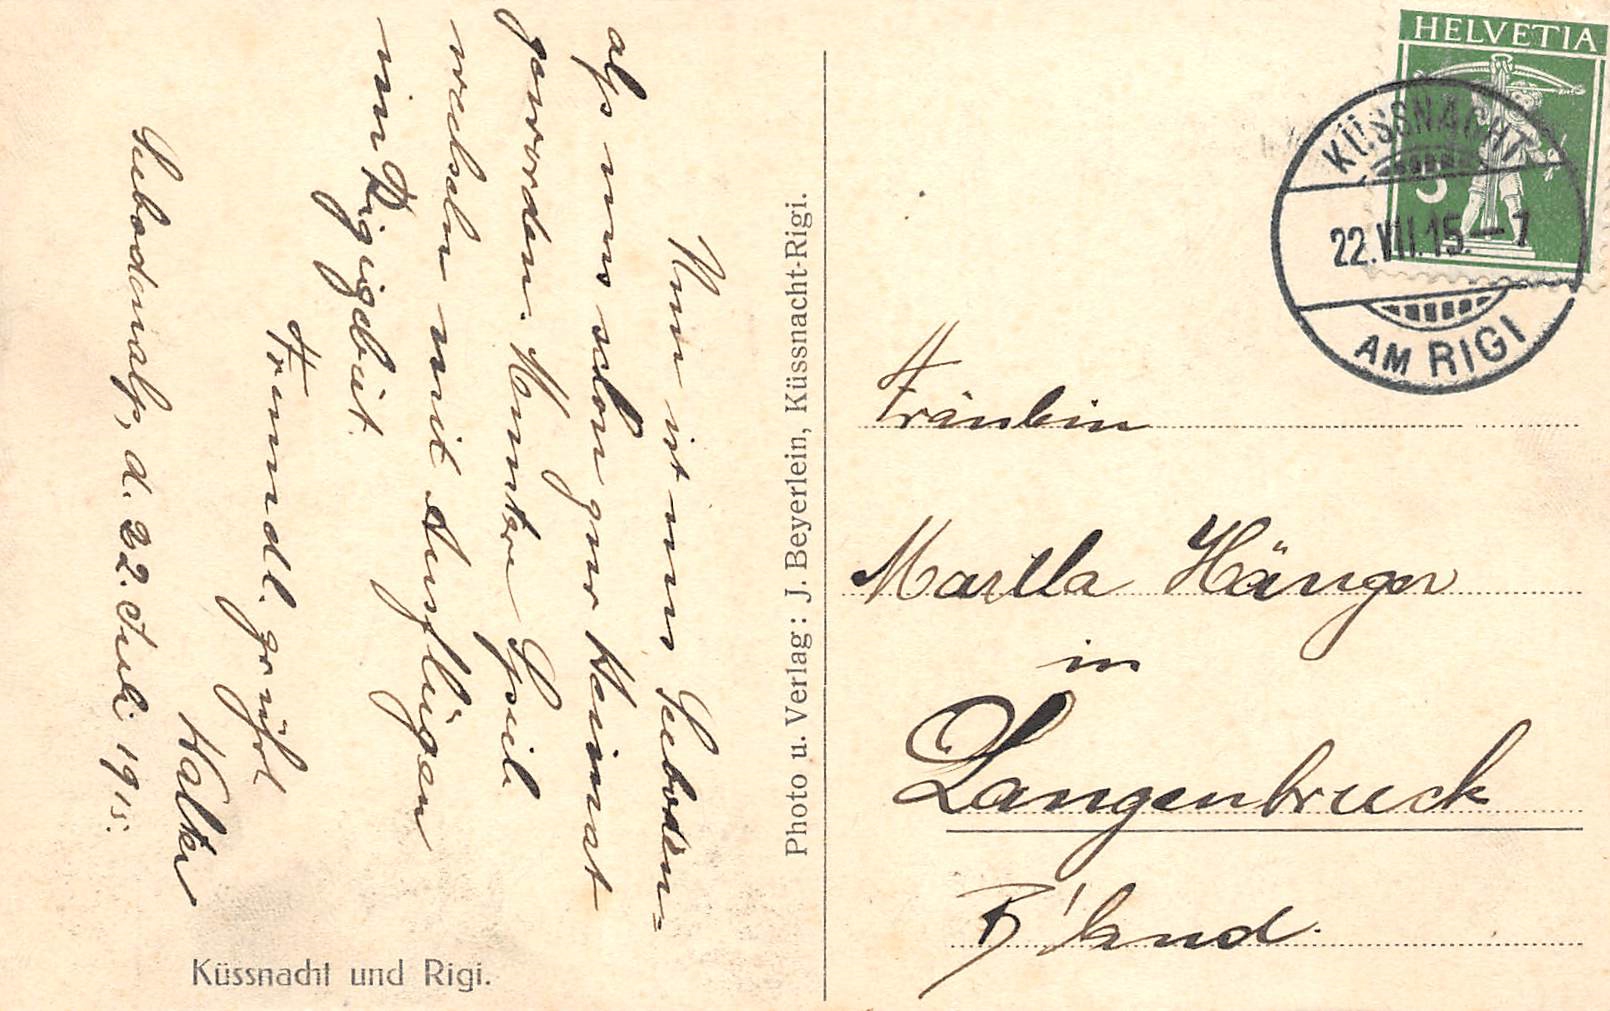 Nun ist uns Seeboden=
alp uns schon zur Heimat
geworden. Muntere Spiele
wechseln mit Ausflügen
im Rigigebiet.
Freundl. grüßt
Walter
Seebodenalp, d. 22. Juli 1915.
Küssnacht und Rigi.
Photo u. Verlag: J. Beyerlein, Küssnacht-Rigi.
HELVETIA
5
KÜSSNACHT
22.VII.15–7
AM RIGI
Fräulein
Martha Hänger
in
Langenbruck
B'land.